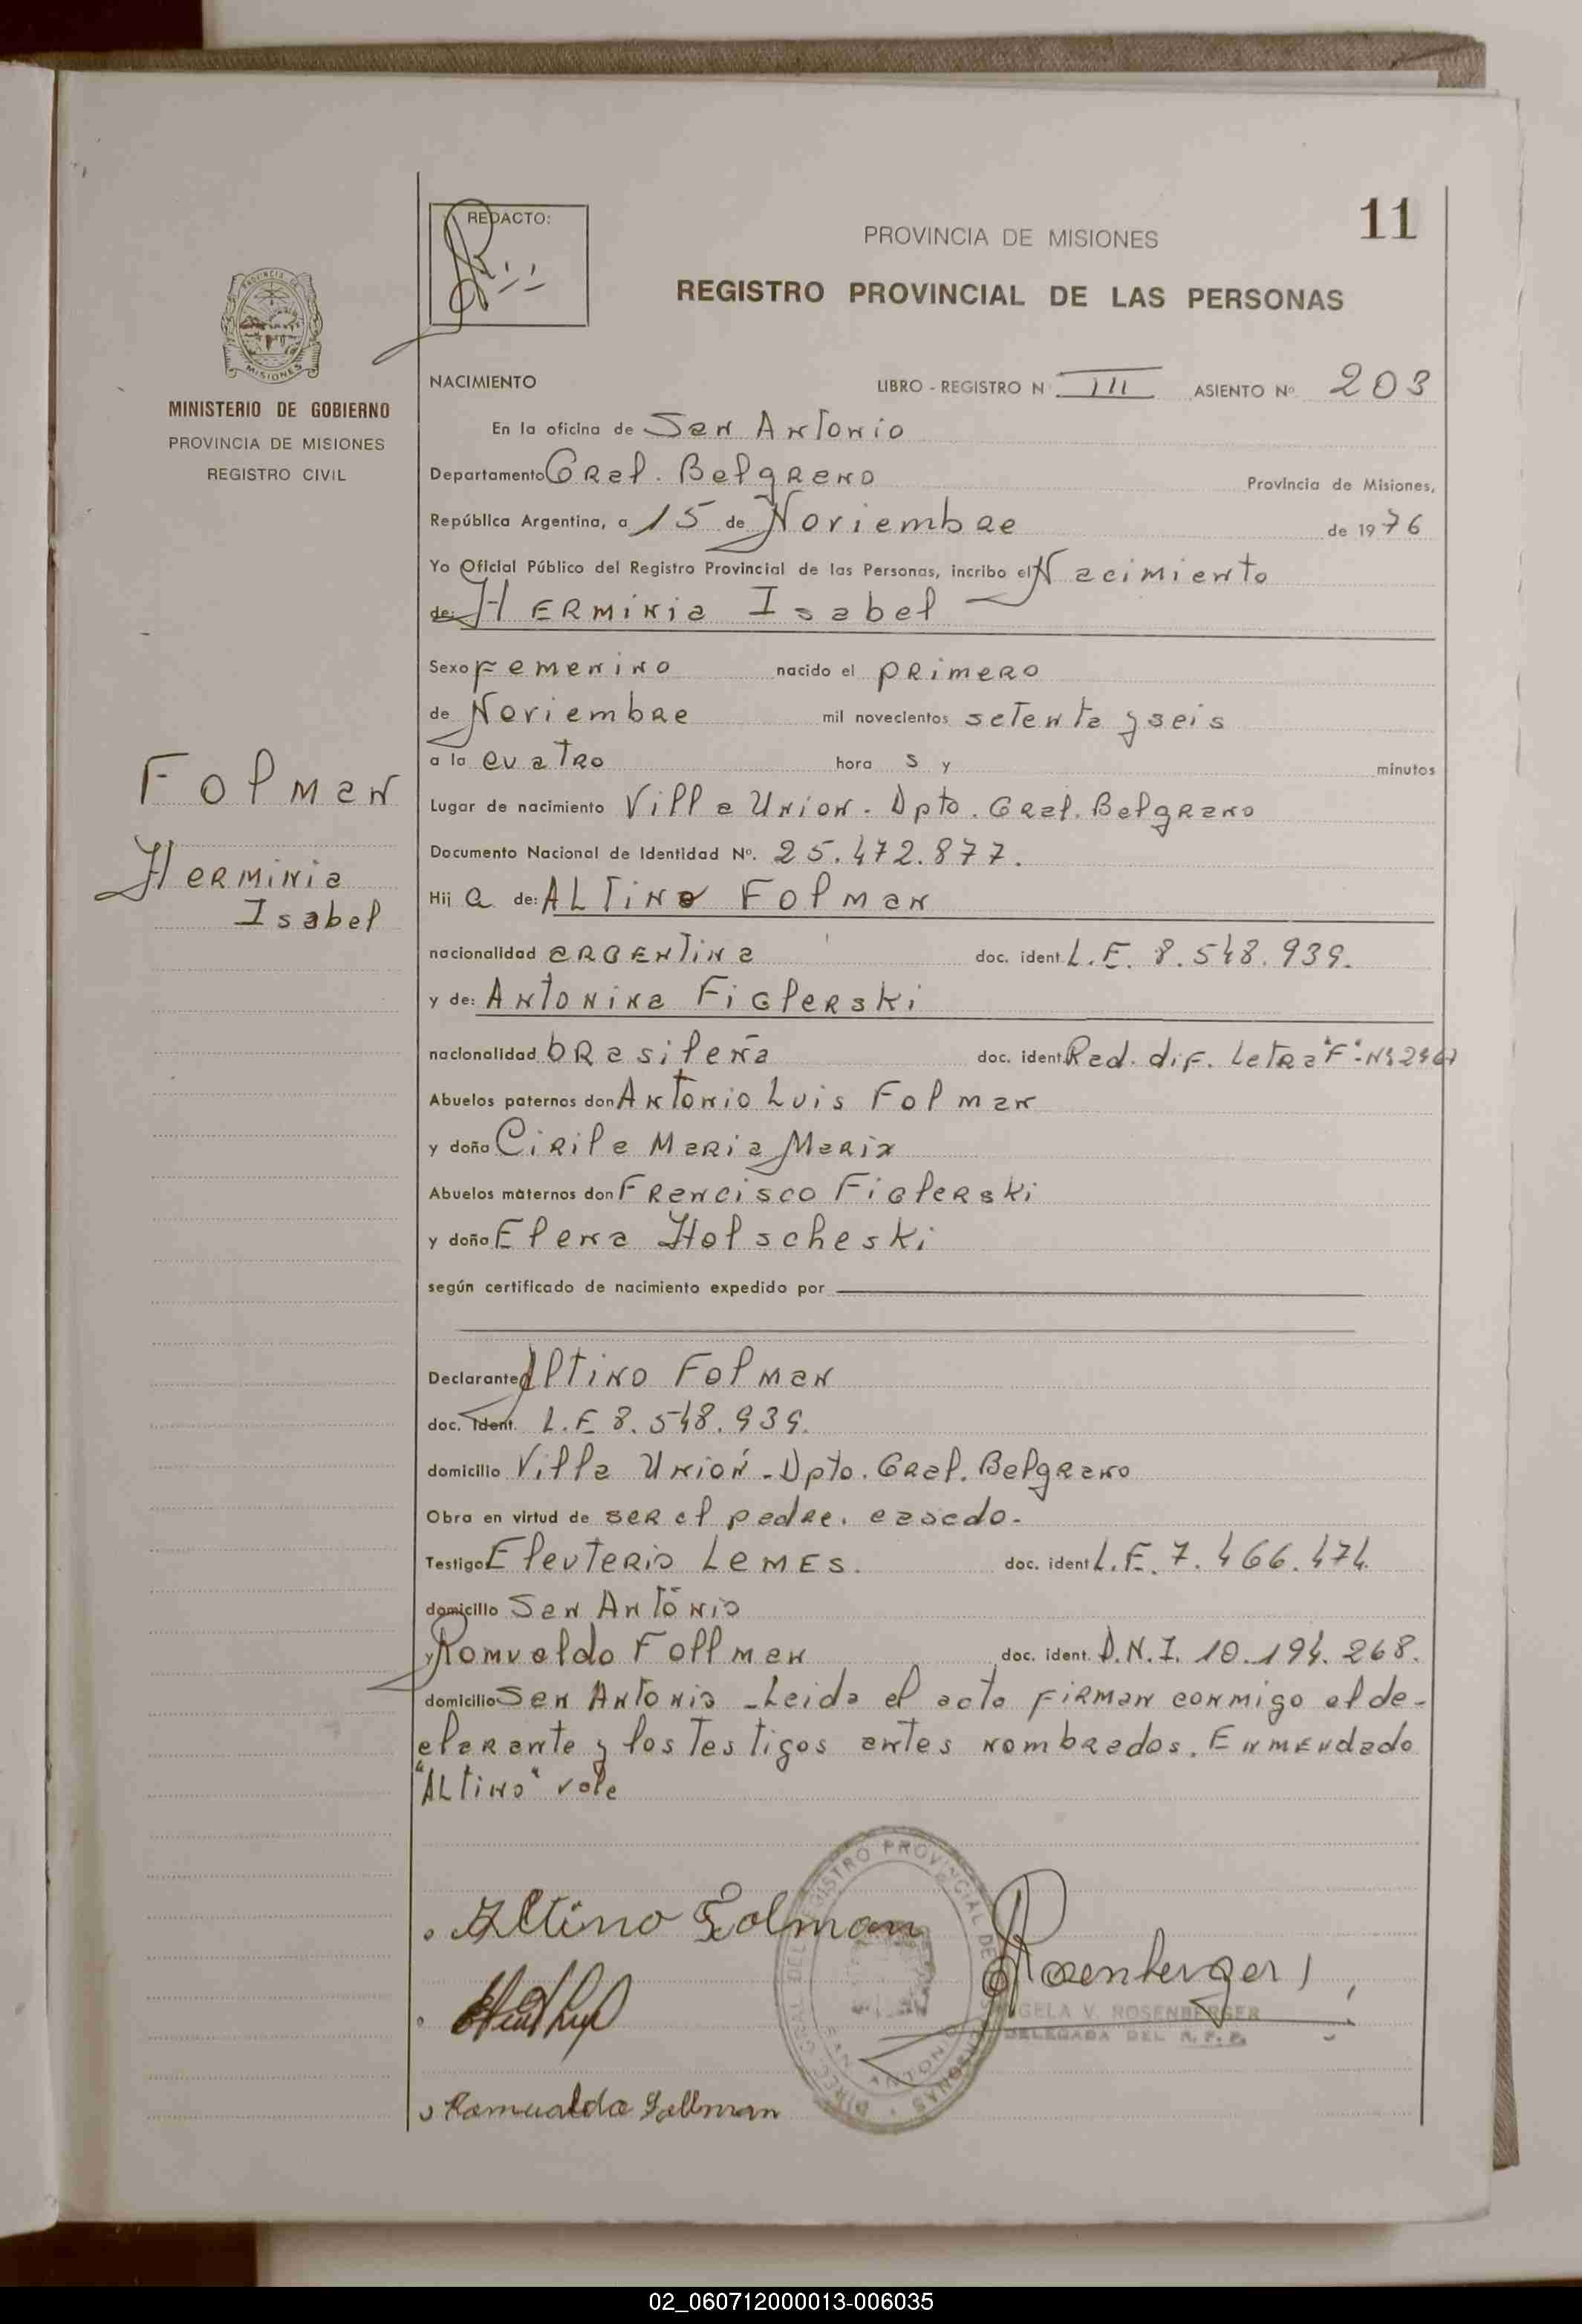 11
REDACTO:
PROVINCIA DE MISIONES
REGISTRO PROVINCIAL DE LAS PERSONAS
PROVINCIA
MISIONES
MINISTERIO DE GOBIERNO
PROVINCIA DE MISIONES
REGISTRO CIVIL
Folman
Herminia
Isabel
NACIMIENTO LIBRO - REGISTRO N III ASIENTO Nº 203
En la oficina de San Antonio
Departamento Gral. Belgrano Provincia de Misiones,
República Argentina, a 15 de Noviembre de 1976
Yo Oficial Público del Registro Provincial de las Personas, incribo el Nacimiento
de: HERMINIA Isabel
Sexo Femenino nacido el primero
de Noviembre mil novecientos setenta y seis
a la cuatro hora s y minutos
Lugar de nacimiento Villa Union - Dpto. Gral. Belgrano
Documento Nacional de Identidad Nº. 25.472.877.
Hij a de: ALTINO Folman
nacionalidad argentina doc. ident. L.E. 8.548.939.
y de: Antonina Figlerski
nacionalidad brasileña doc. ident. Rad. dif. Letra "F"
Abuelos paternos don Antonio Luis Folman
y doña Cirila Maria
Abuelos maternos don Francisco Figlerski
y doña Elena Holscheski
según certificado de nacimiento expedido por
Declarante Altino Folman
doc. ident. L.E 8.548.939.
domicilio Villa Unión - Dpto. Gral. Belgrano
Obra en virtud de ser el padre. casado.
Testigo Eleuterio Lemes. doc. ident L.E. 7.466.474
domicilio San Antonio
y Romualdo Follman doc. ident. D.N.I. 10.194.268.
domicilio San Antonio - Leida el acta firman conmigo el de-
clarante y los testigos antes nombrados. Enmendado
"ALtino" vale
Altino Folman
Rosenberger
GELA V. ROSENBERGER
DELEGADA DEL R.P.P.
DIREC. GRAL. DEL REGISTRO PROVINCIAL DE LAS PERSONAS
SAN ANTONIO
Romualdo Follman
02_060712000013-006035